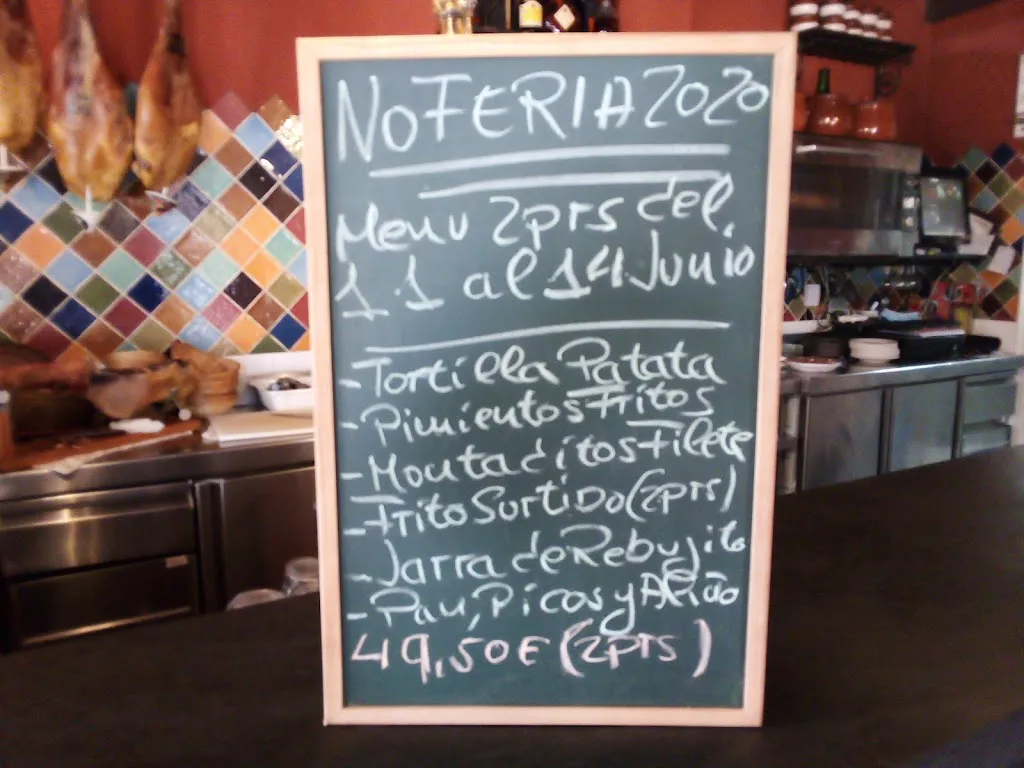 NOFERIA 2020
Menu 2prs del
11 al 14 Junio
- Tortilla Patata
- Pimientos Fritos
- Montaditos Filete
- Frito Surtido (2prs)
- Jarra de Rebujito
- Pan, Picos y Aliño
49,50€ (2prs)